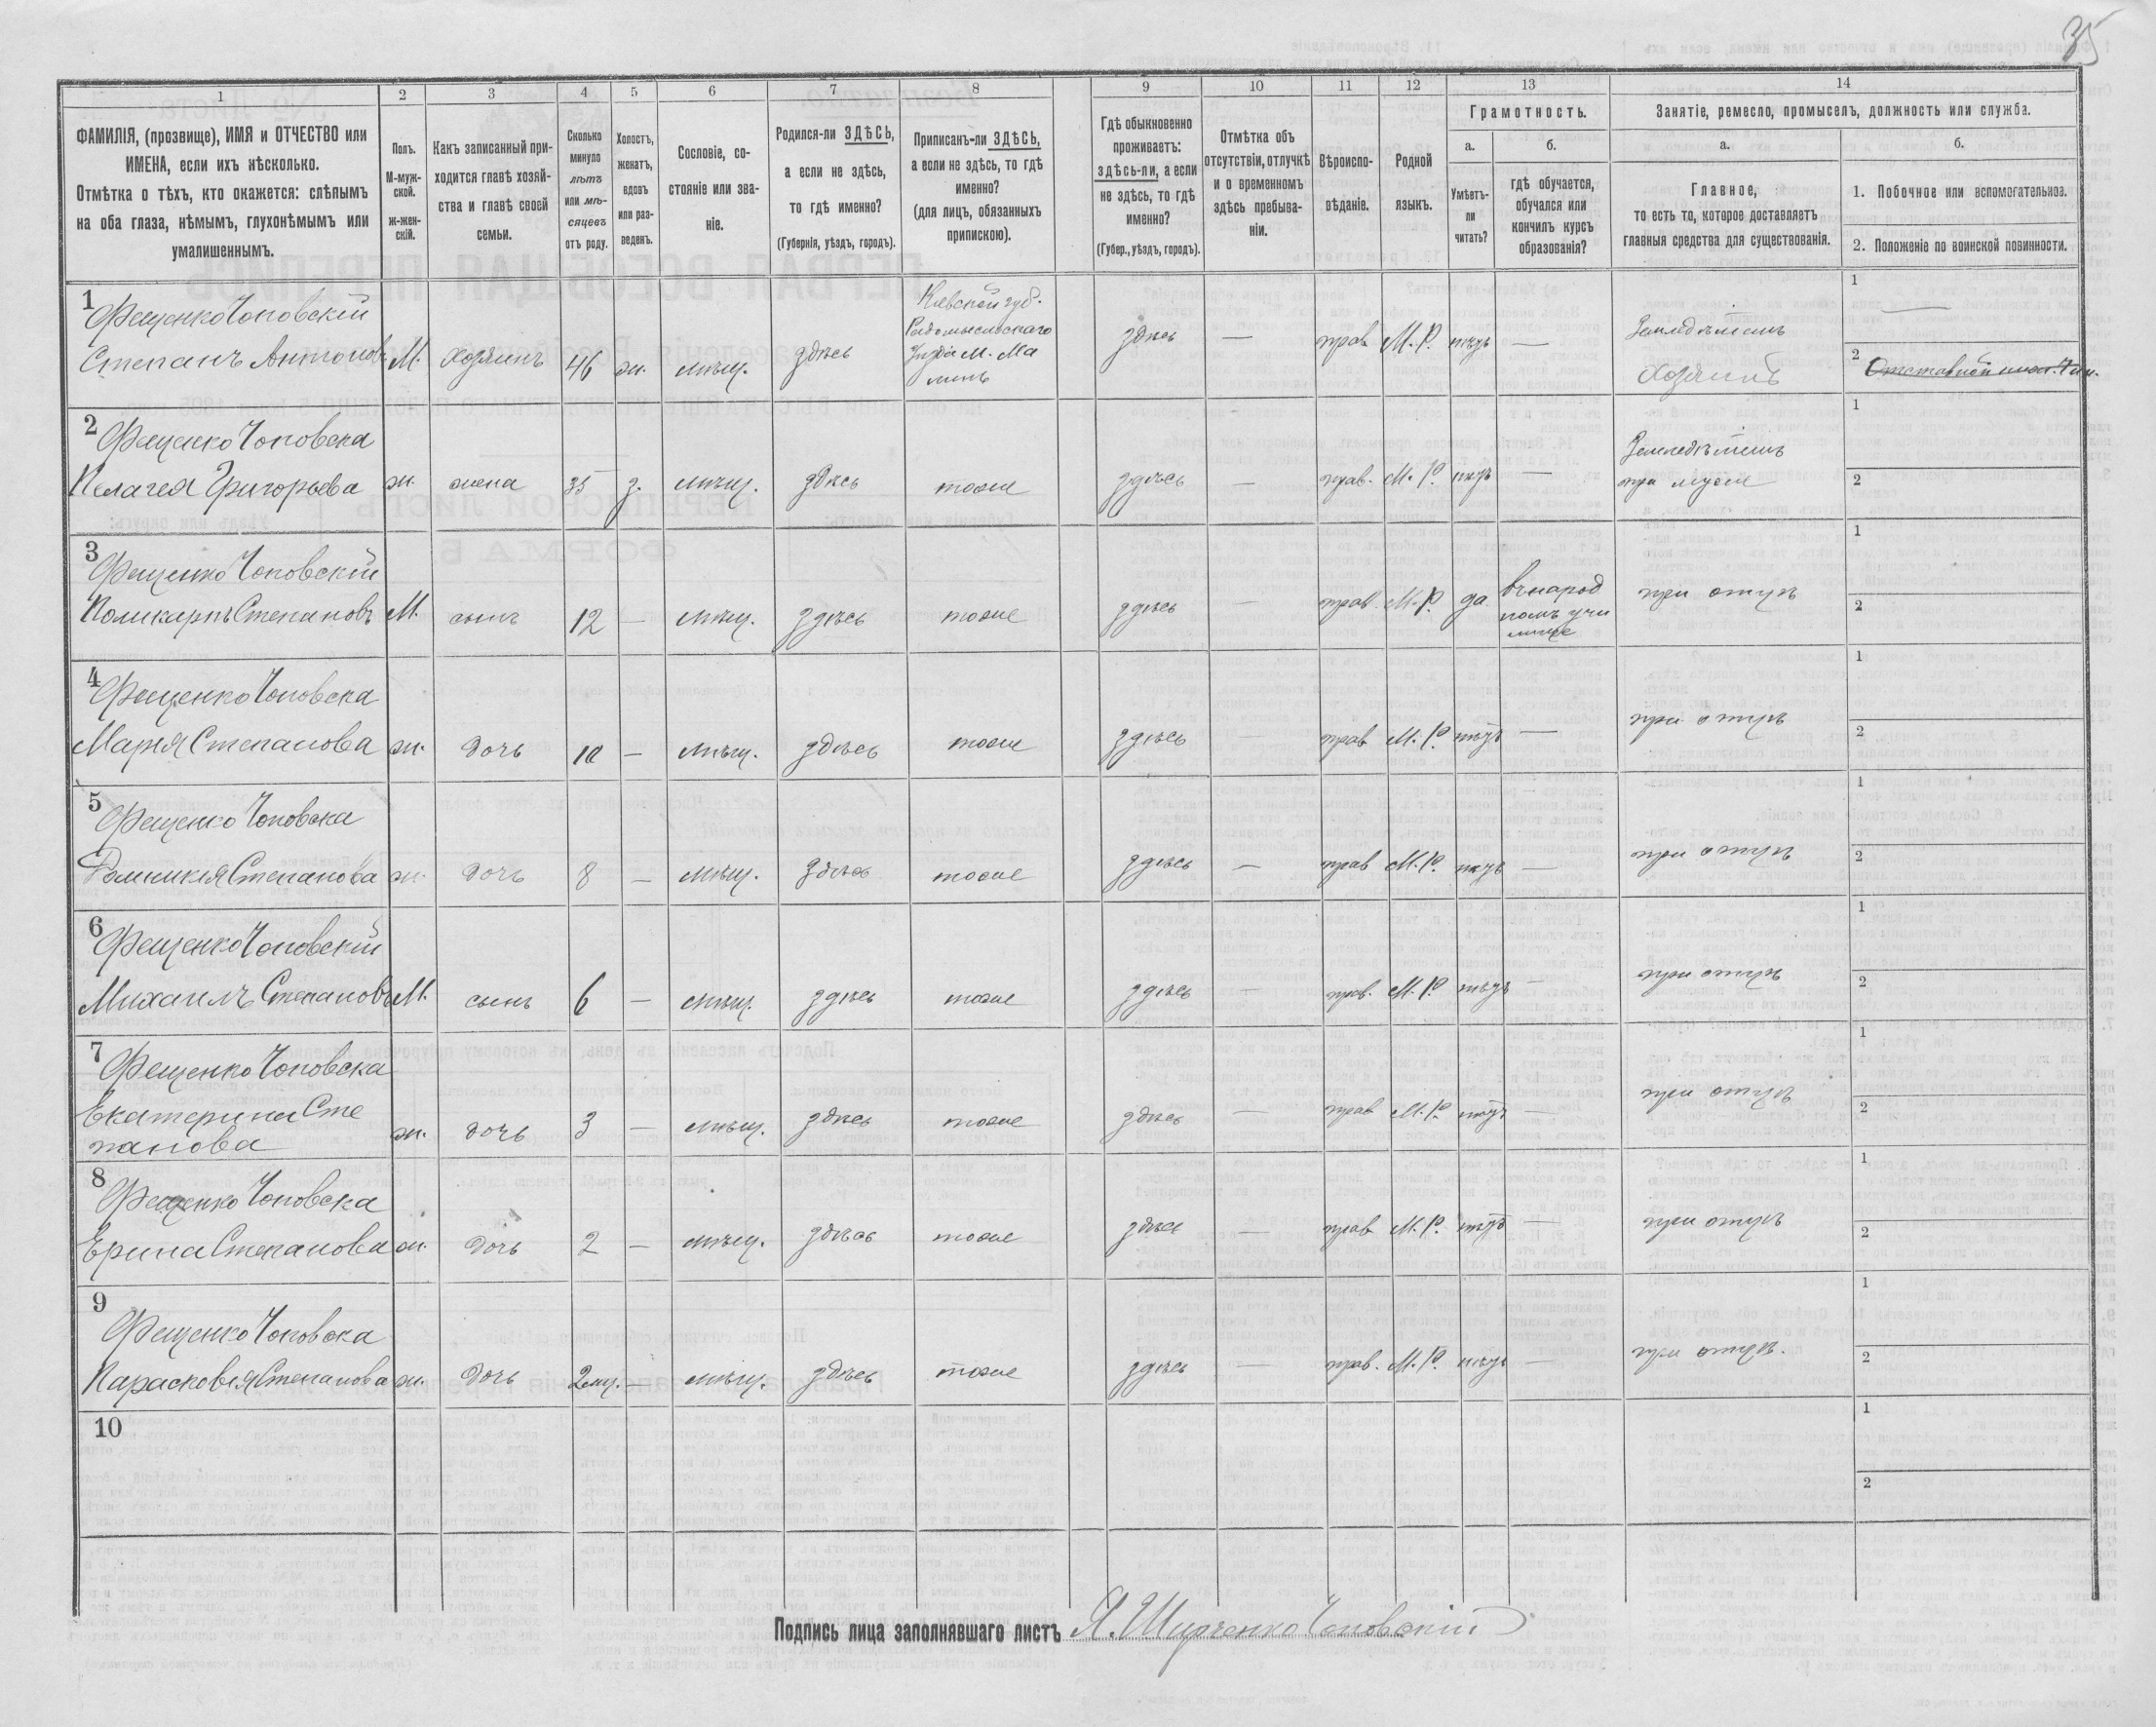 35
1 2 3 4 5 6 7 8 9 10 11 12 13 14
ФАМИЛІЯ, (прозвище), ИМЯ и ОТЧЕСТВО или
ИМЕНА, если ихъ нѣсколько.
Отмѣтка о тѣхъ, кто окажется: слѣпымъ
на оба глаза, нѣмымъ, глухонѣмымъ или
умалишеннымъ.
Полъ.
М-муж-
ской.
ж-жен-
скій.
Какъ записанный при-
ходится главѣ хозяй-
ства и главѣ своей
семьи.
Сколько
минуло
лѣтъ
или мѣ-
сяцевъ
отъ роду.
Холостъ,
женатъ,
вдовъ
или раз-
веденъ.
Сословіе, со-
стояніе или зва-
ніе.
Родился-ли ЗДѢСЬ,
а если не здѣсь,
то гдѣ именно?
(Губернія, уѣздъ, городъ).
Приписанъ-ли ЗДѢСЬ,
а если не здѣсь, то гдѣ
именно?
(для лицъ, обязанныхъ
припискою).
Гдѣ обыкновенно
проживаетъ:
здѣсь-ли, а если
не здѣсь, то гдѣ
именно?
(Губер., уѣздъ, городъ).
Отмѣтка объ
отсутствіи, отлучкѣ
и о временномъ
здѣсь пребыва-
ніи.
Вѣроиспо-
вѣданіе.
Родной
языкъ.
Грамотность.
а.
Умѣетъ-
ли
читать?
б.
гдѣ обучается,
обучался или
кончилъ курсъ
образованія?
Занятіе, ремесло, промыселъ, должность или служба.
а.
Главное,
то есть то, которое доставляетъ
главныя средства для существованія.
б.
1. Побочное или вспомогательное.
2. Положеніе по воинской повинности.
1 Фещенко Чоповскій
Степанъ Антоновъ М. хозяинъ 46 ж. мѣщ. здѣсь
Кіевской губ.
Радомысльскаго
уѣзда м. Ма
линъ
здѣсь — прав М. Р. нѣтъ —
Земледѣлецъ
хозяинъ
1 —
2 Отставной
2 Фещенко Чоповска
Пелагея Григорьева ж. жена 35 з. мѣщ. здѣсь тоже здѣсь — прав. М. Р. нѣтъ —
Земледѣлецъ
при мужѣ
1
2
3 Фещенко Чоповскій
Поликарпъ Степановъ М. сынъ 12 — мѣщ. здѣсь тоже здѣсь — прав. М. Р. да
въ народ
номъ учи
лище
при отцѣ
1
2
4 Фещенко Чоповска
Марія Степанова ж. дочь 10 — мѣщ. здѣсь тоже здѣсь — прав М. Р. нѣтъ — при отцѣ
1
2
5 Фещенко Чоповска
Домникія Степанова ж. дочь 8 — мѣщ. здѣсь тоже здѣсь — прав М. Р. нѣтъ — при отцѣ
1
2
6 Фещенко Чоповскій
Михаилъ Степановъ М. сынъ 6 — мѣщ. здѣсь тоже здѣсь — прав. М. Р. нѣтъ — при отцѣ
1
2
7 Фещенко Чоповска
Екатерина Сте
панова ж. дочь 3 — мѣщ. здѣсь тоже здѣсь — прав М. Р. нѣтъ — при отцѣ
1
2
8 Фещенко Чоповска
Ерина Степанова ж. дочь 2 — мѣщ. здѣсь тоже здѣсь — прав М. Р. нѣтъ — при отцѣ
1
2
9 Фещенко Чоповска
Парасковія Степанова ж. дочь 2 мц. — мѣщ. здѣсь тоже здѣсь — прав. М. Р. нѣтъ — при отцѣ.
1
2
10
1
2
Подпись лица заполнявшаго листъ Чоповскій